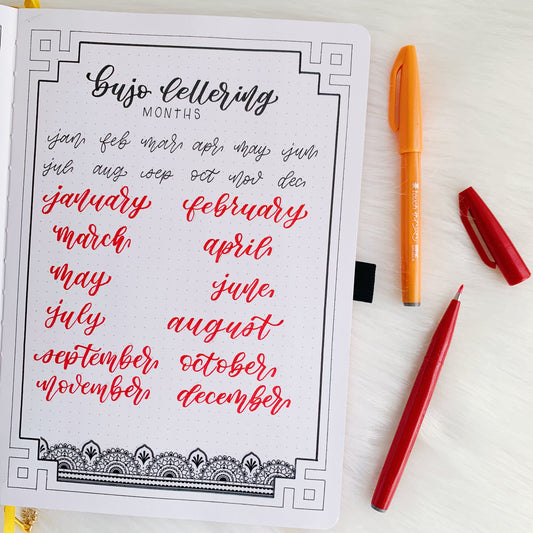 bujo lettering
MONTHS
jan feb mar apr may jun
jul aug sep oct nov dec
january february
march april
may june
july august
september october
november december